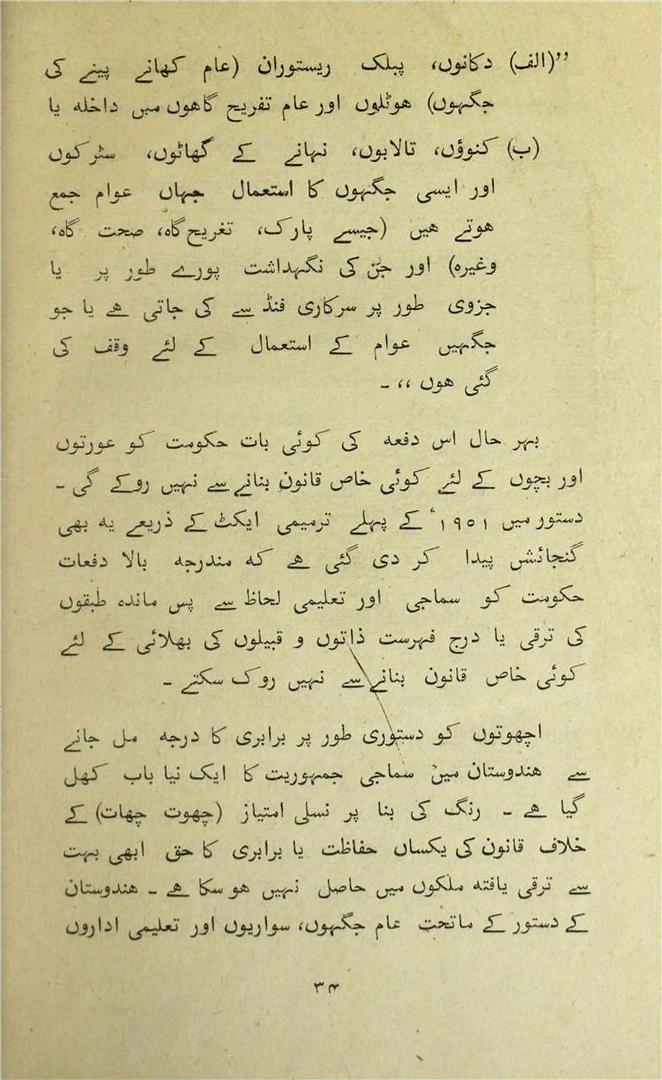 ”(الف) دکانوں، پبلک ریستوران (عام کھانے پینے کی
جگہوں) ھوٹلوں اور عام تفریح گاھوں میں داخلہ یا
(ب) کنوؤں، تالابوں، نہانے کے گھاٹوں، سٹرکوں
اور ایسی جگہوں کا استعمال جہاں عوام جمع
ھوتے ھیں (جیسے پارک، تغریح گاہ، صحت گاہ،
وغیرہ) اور جن کی نگہداشت پورے طور پر یا
جزوی طور پر سرکاری فنڈ سے کی جاتی ھے یا جو
جگہیں عوام کے استعمال کے لئے وقف کی
گئی ھوں ،، ۔
بہر حال اس دفعہ کی کوئی بات حکومت کو عورتوں
اور بچوں کے لئے کوئی خاص قانون بنانے سے نہیں روکے گی ۔
دستور میں ۱۹۵۱ٴ کے پہلے ترمیمی ایکٹ کے ذریعے یہ بھی
گنجائش پیدا کر دی گئی ھے کہ مندرجہ بالا دفعات
حکومت کو سماجی اور تعلیمی لحاظ سے پس ماندہ طبقوں
کی ترقی یا درج فہرست ذاتوں و قبیلوں کی بھلائی کے لئے
کوئی خاص قانون بنانے سے نہیں روک سکتے ۔
اچھوتوں کو دستوری طور پر برابری کا درجہ مل جانے
سے ھندوستان میں سماجی جمہوریت کا ایک نیا باب کھل
گیا ھے ۔ رنگ کی بنا پر نسلی امتیاز (چھوت چھات) کے
خلاف قانون کی یکساں حفاظت یا برابری کا حق ابھی بہت
سے ترقی یافتہ ملکوں میں حاصل نہیں ھو سکا ھے ۔ ھندوستان
کے دستور کے ماتحت عام جگہوں، سواریوں اور تعلیمی اداروں
۳۴